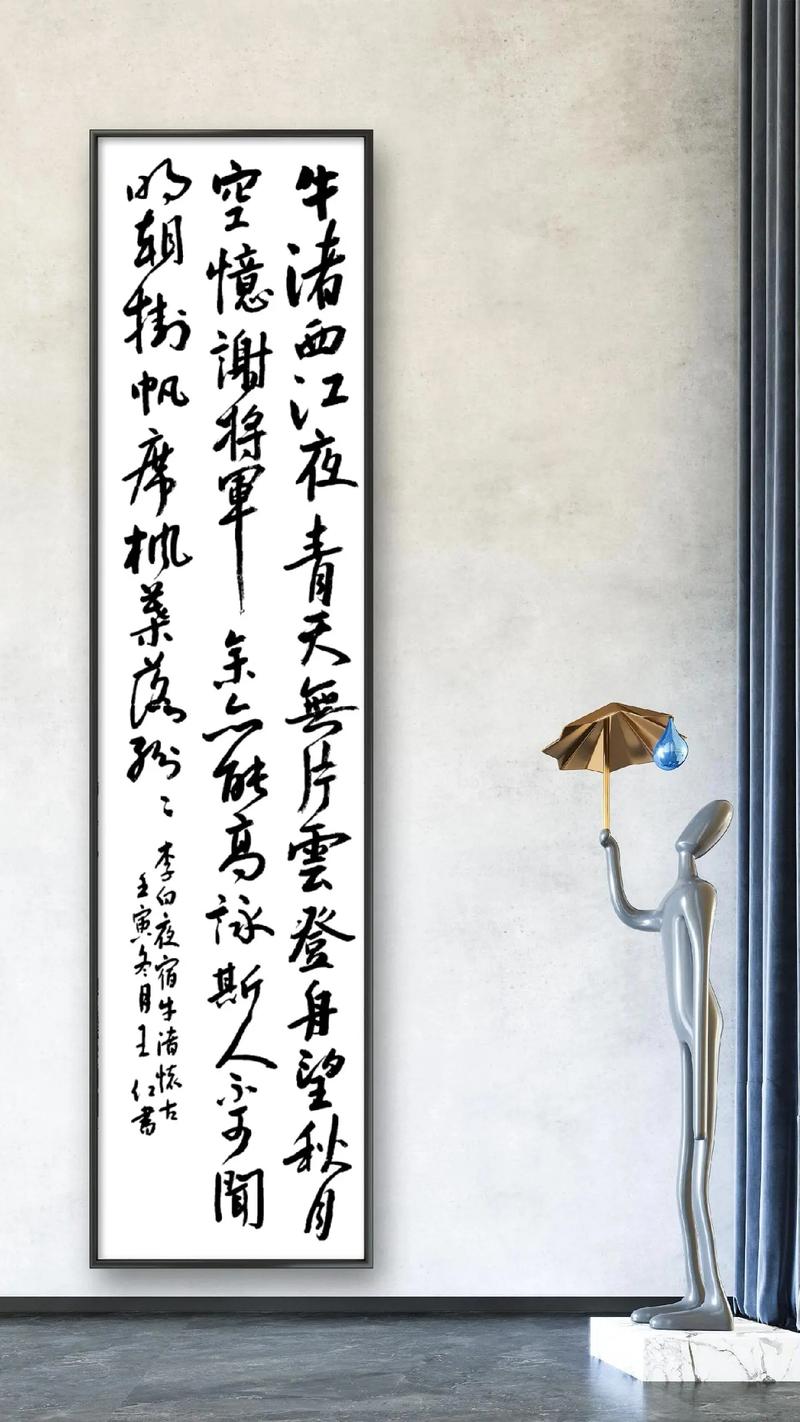 牛渚西江夜青天無片雲登舟望秋月
空憶謝將軍余亦能高詠斯人不可聞
明朝掛帆席楓葉落紛〻
李白夜宿牛渚懷古
壬寅冬月王仁書